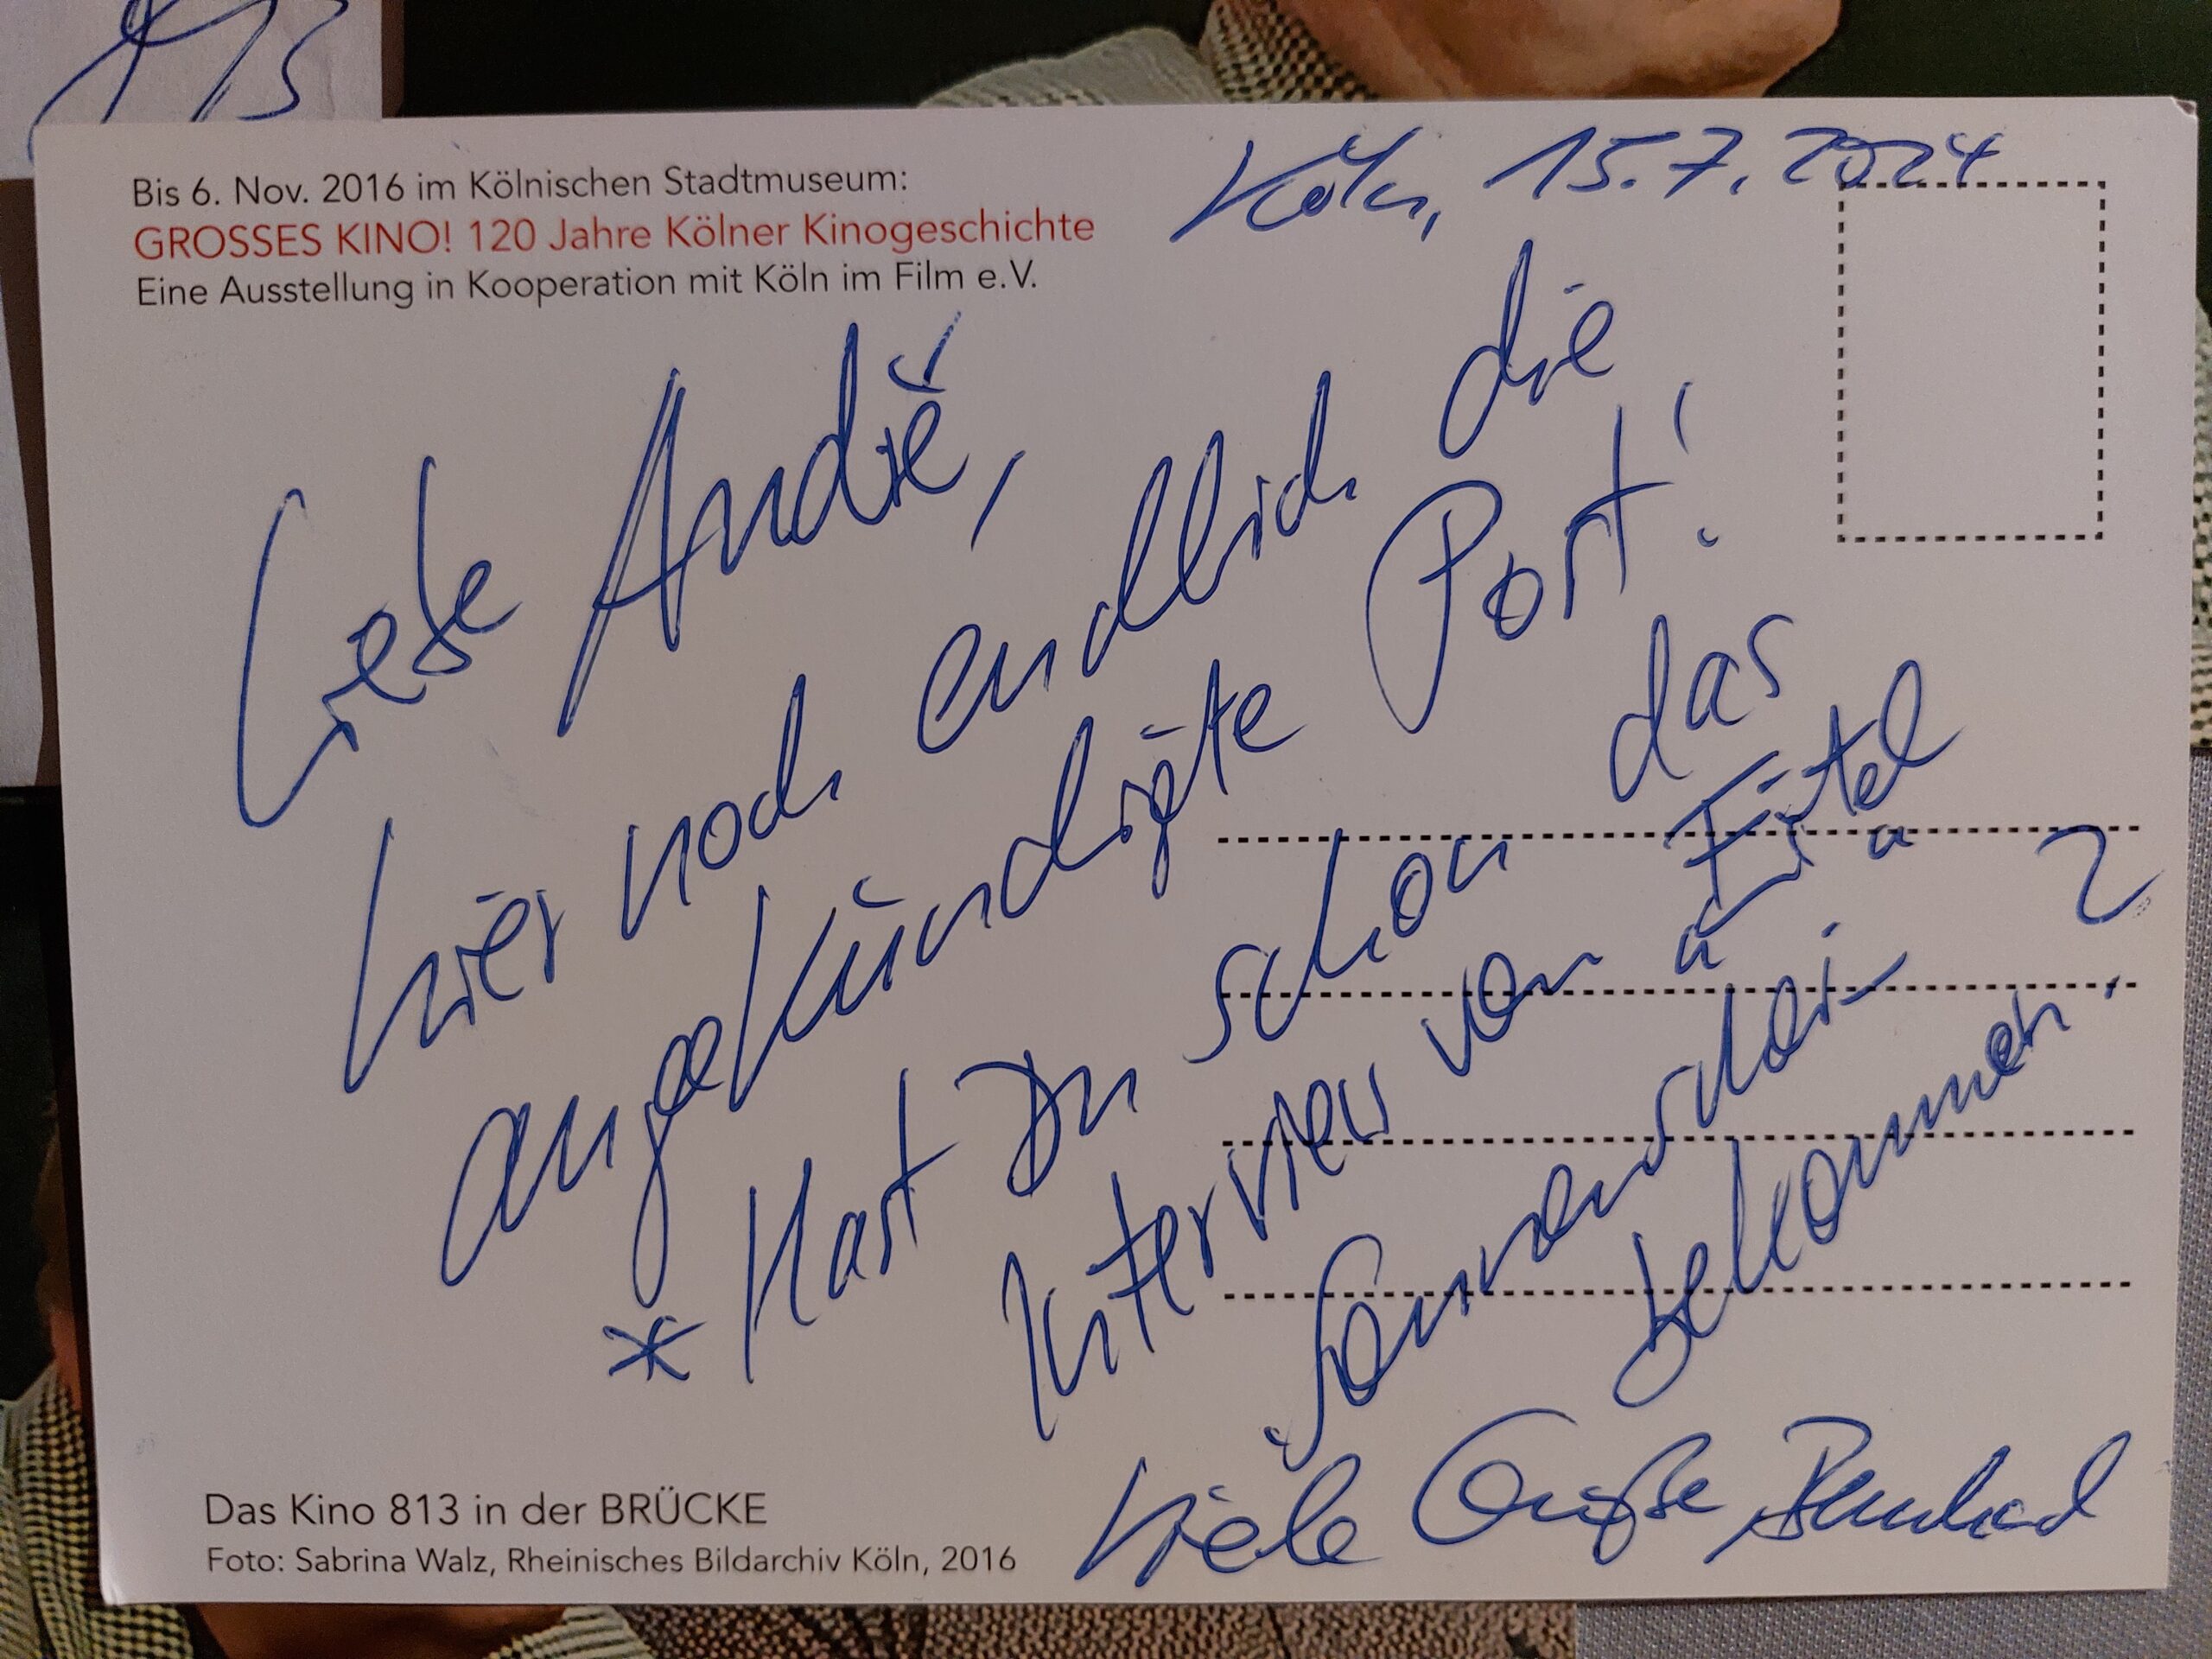 Bis 6. Nov. 2016 im Kölnischen Stadtmuseum:
GROSSES KINO! 120 Jahre Kölner Kinogeschichte
Eine Ausstellung in Kooperation mit Köln im Film e.V.
Köln, 15.7.2024
Liebe André,
hier noch endlich die
angekündigte Post!
* Hast Du schon das
Interview von
bekommen?
Viele Grüße Bernhard
Das Kino 813 in der BRÜCKE
Foto: Sabrina Walz, Rheinisches Bildarchiv Köln, 2016